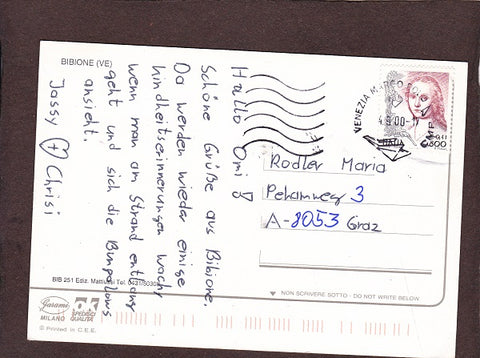 BIBIONE (VE)
Hallo Omi
Schöne Grüße aus Bibione.
Da werden wieder einige
kindheitserinnerungen wach,
wenn man am Strand entlang
geht und sich die Bungalows
ansieht.
Jassy + Chrisi
VENEZIA MARCO POLO
4.9.00-17
ITALIA
800
Rodler Maria
Pehamweg 3
A-8053 Graz
BIB 251 Ediz. Mattiussi Tel. 0431/
NON SCRIVERE SOTTO - DO NOT WRITE BELOW
Garami
MILANO
SPEDISCI
QUALITÀ
© Printed in C.E.E.